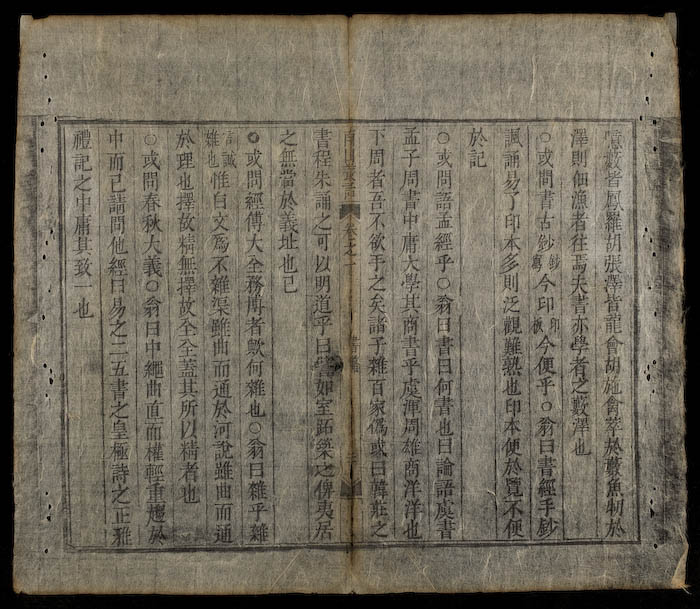 噫藪者鳳羅胡張澤皆龍會胡施禽萃於藪魚牣於
澤則佃漁者往焉夫書亦學者之藪澤也
○或問書古鈔鈔寫今印印板今便乎○翁曰書經手鈔
諷誦易了印本多則泛觀難熟也印本便於覽不便
於記
○或問語孟經乎○翁曰書曰何書也曰論語虞書
孟子周書中庸大學其商書乎虞渾周雄商洋洋也
下周者吾不欲手之矣諸子雜百家僞或曰韓莊之
卷之一
書程朱誦之可以明道乎曰如室跖築之俾夷居
之無當於義址也已
○或問經傳大全務博者歟何雜也○翁曰雜乎雜
雖也惟白文爲不雜渠雖曲而通於河說雖曲而通
於理也擇故精無擇故全全蓋其所以精者也
○或問春秋大義○翁曰中繩曲直而權輕重趨於
中而已請問他經曰易之二五書之皇極詩之正雅
禮記之中庸其致一也